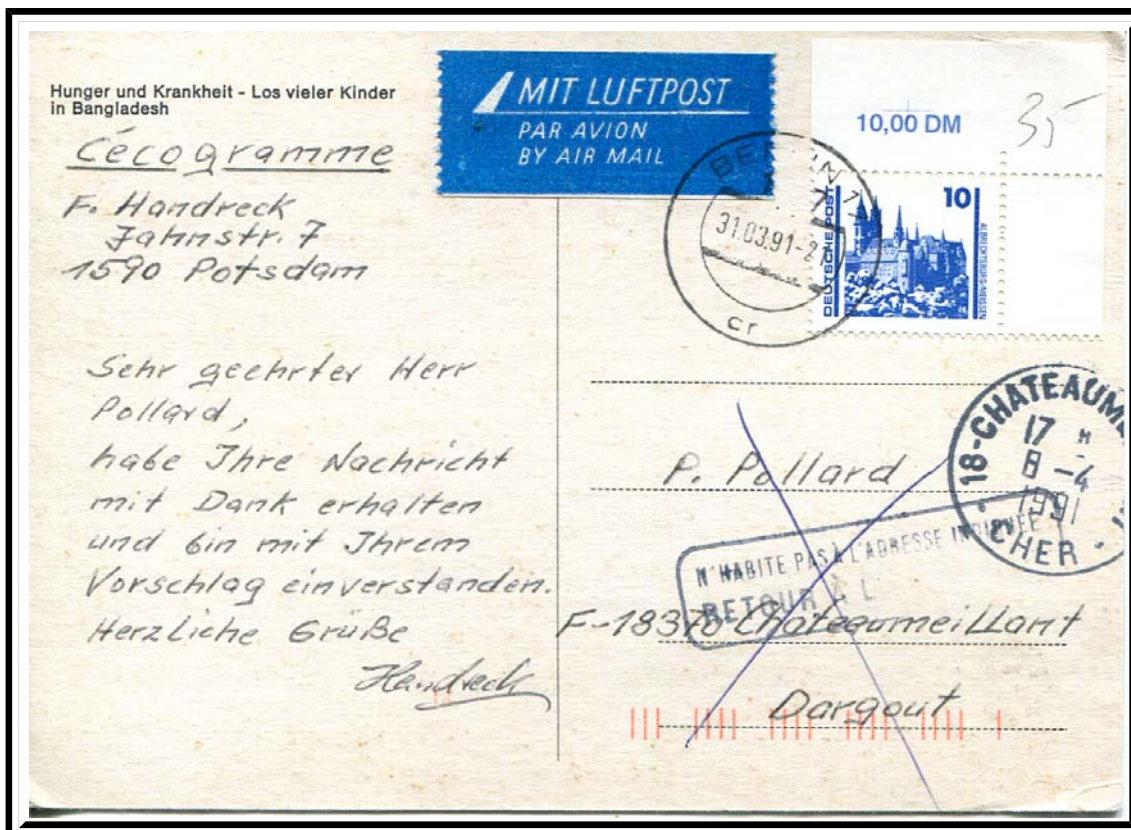 Hunger und Krankheit - Los vieler Kinder
in Bangladesh
Cécogramme
F. Handreck
Jahnstr. 7
1590 Potsdam
Sehr geehrter Herr
Pollard,
habe Ihre Nachricht
mit Dank erhalten
und bin mit Ihrem
Vorschlag einverstanden.
Herzliche Grüße
Handreck
MIT LUFTPOST
PAR AVION
BY AIR MAIL
10,00 DM
35
BERLIN
31.03.91-21
cr
10
DEUTSCHE POST
ALBRECHTSBURG-MEISSEN
18-CHATEAUM
17 H
8-4
1991
CHER
P. Pollard
N'HABITE PAS À L'ADRESSE INDIQUÉE
RETOUR À L'
F-18370 Chateaumeillant
Dargout